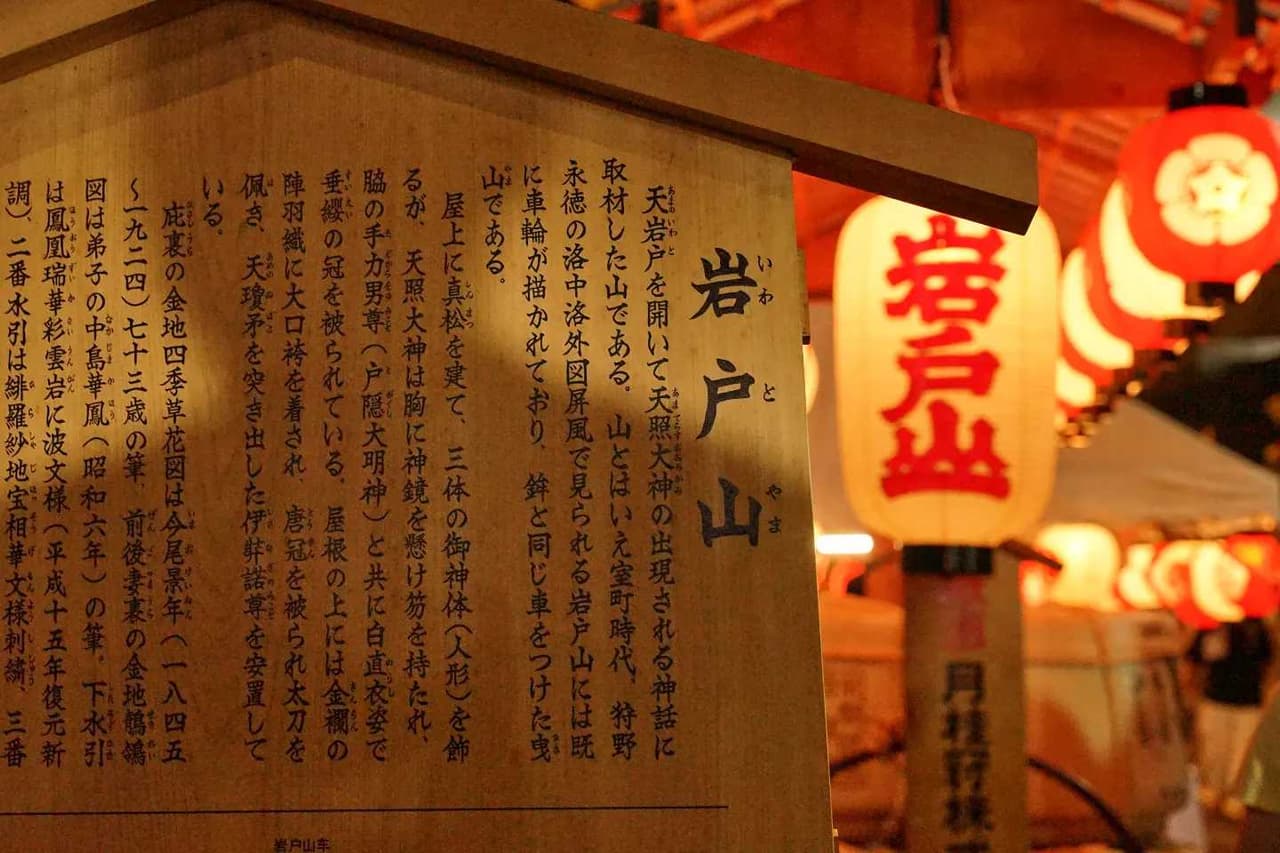 岩戸山
いわとやま
天岩戸を開いて天照大神の出現される神話に
取材した山である。山とはいえ室町時代、狩野
永徳の洛中洛外図屏風で見られる岩戸山には既
に車輪が描かれており、鉾と同じ車をつけた曳
山である。
屋上に真松を建て、三体の御神体(人形)を飾
るが、天照大神は胸に神鏡を懸け笏を持たれ、
脇の手力男尊(戸隠大明神)と共に白直衣姿で
垂纓の冠を被られている。屋根の上には金襴の
陣羽織に大口袴を着され、唐冠を被られ太刀を
佩き、天瓊矛を突き出した伊弉諾尊を安置して
いる。
庇裏の金地四季草花図は今尾景年(一八四五
〜一九二四)七十三歳の筆、前後妻裏の金地鶺鴒
図は弟子の中島華鳳(昭和六年)の筆。下水引
は鳳凰瑞華彩雲岩に波文様(平成十五年復元新
調)、二番水引は緋羅紗地宝相華文様刺繍、三番
岩戸山車
岩戸山
月桂冠株